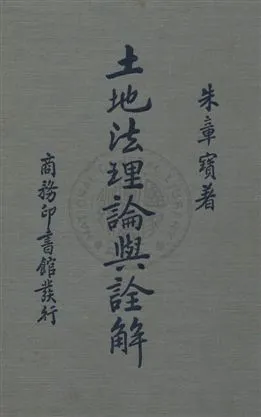 朱章寶著
土地法理論與詮解
商務印書館發行